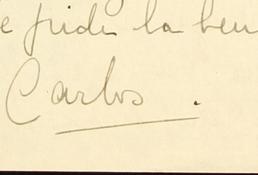 e pide la ben
Carlos.